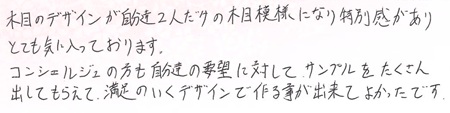 木目のデザインが自達2人だけの木目模様になり特別感があり
とても気に入っております。
コンシェルジュの方も自達の要望に対して、サンプルをたくさん
出してもらえて、満足のいくデザインで作る事が出来てよかったです。